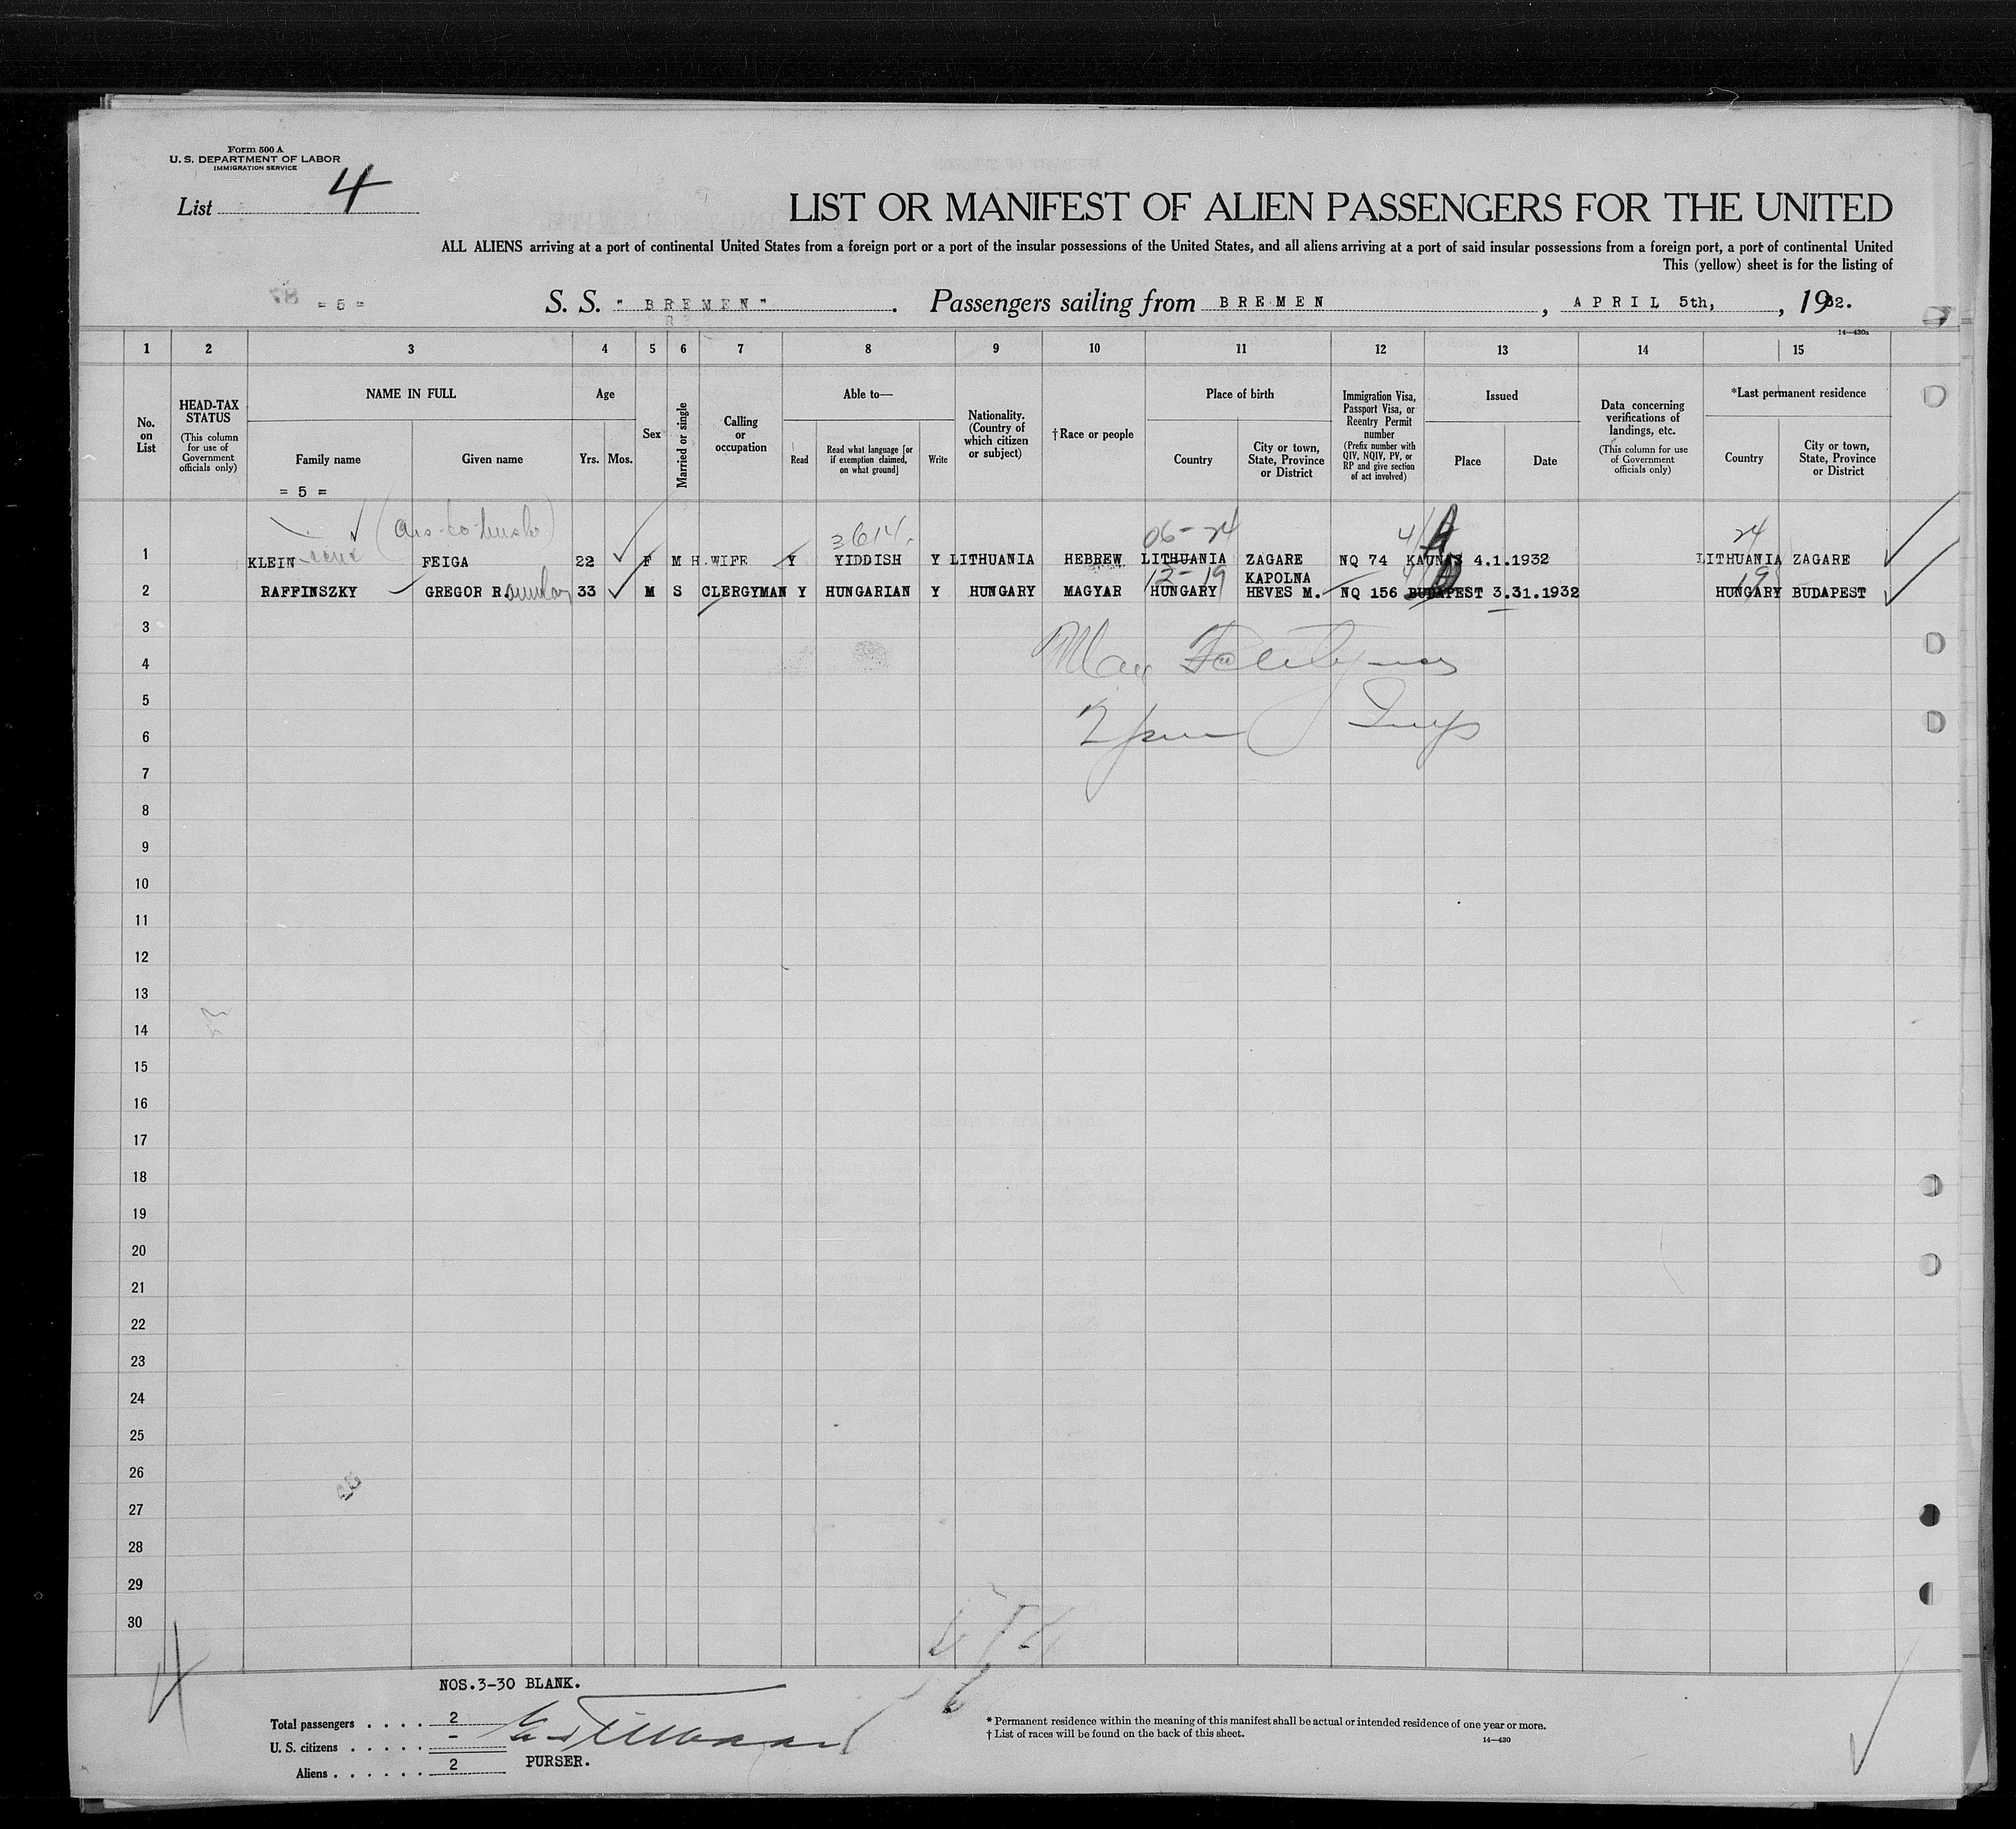 Form 500 A
U. S. DEPARTMENT OF LABOR
IMMIGRATION SERVICE
List 4
LIST OR MANIFEST OF ALIEN PASSENGERS FOR THE UNITED
ALL ALIENS arriving at a port of continental United States from a foreign port or a port of the insular possessions of the United States, and all aliens arriving at a port of said insular possessions from a foreign port, a port of continental United
This (yellow) sheet is for the listing of
= 5 = S. S. " BREMEN" . Passengers sailing from BREMEN , APRIL 5th, , 1932.
14—430a
1 2 3 4 5 6 7 8 9 10 11 12 13 14 15
No. on List
HEAD-TAX STATUS
(This column for use of Government officials only)
NAME IN FULL
Family name
Given name
Age
Yrs.
Mos.
Sex
Married or single
Calling or occupation
Able to—
Read
Read what language [or if exemption claimed, on what ground]
Write
Nationality. (Country of which citizen or subject)
†Race or people
Place of birth
Country
City or town, State, Province or District
Immigration Visa, Passport Visa, or Reentry Permit number
(Prefix number with QIV, NQIV, PV, or RP and give section of act involved)
Issued
Place
Date
Data concerning verifications of landings, etc.
(This column for use of Government officials only)
*Last permanent residence
Country
City or town, State, Province or District
= 5 =
3614. 06-24 4/ 24
1 KLEIN FEIGA 22 F M H.WIFE Y YIDDISH Y LITHUANIA HEBREW LITHUANIA ZAGARE NQ 74 KAUNAS 4.1.1932 LITHUANIA ZAGARE
12-19 KAPOLNA 19
2 RAFFINSZKY GREGOR R. 33 M S CLERGYMAN Y HUNGARIAN Y HUNGARY MAGYAR HUNGARY HEVES M. NQ 156 BUDAPEST 3.31.1932 HUNGARY BUDAPEST
3
4
5
6
7
8
9
10
11
12
13
14
15
16
17
18
19
20
21
22
23
24
25
26
27
28
29
30
4
NOS.3-30 BLANK.
Total passengers . . . . 2
U. S. citizens . . . . . -
Aliens . . . . . . 2
PURSER.
* Permanent residence within the meaning of this manifest shall be actual or intended residence of one year or more.
† List of races will be found on the back of this sheet.
14—430